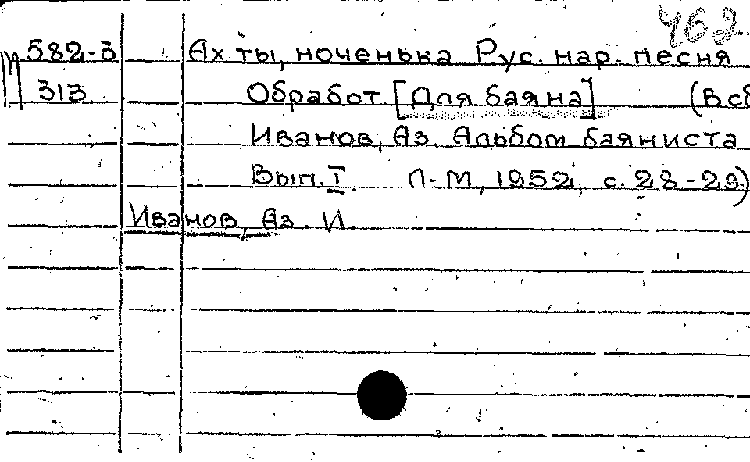 462.
М 582-3 Ах ты, ноченька Рус. нар. песня
313 Обработ. [Для баяна] (В сб
Иванов, Аз. Альбом баяниста
Вып. I. Л-М, 1952, с. 28-29)
Иванов, Аз. И.